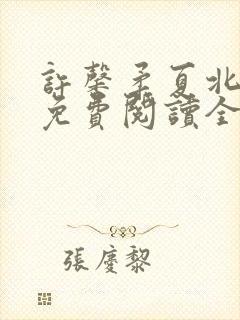 許馨矛夏北
免費閱讀全
張慶黎